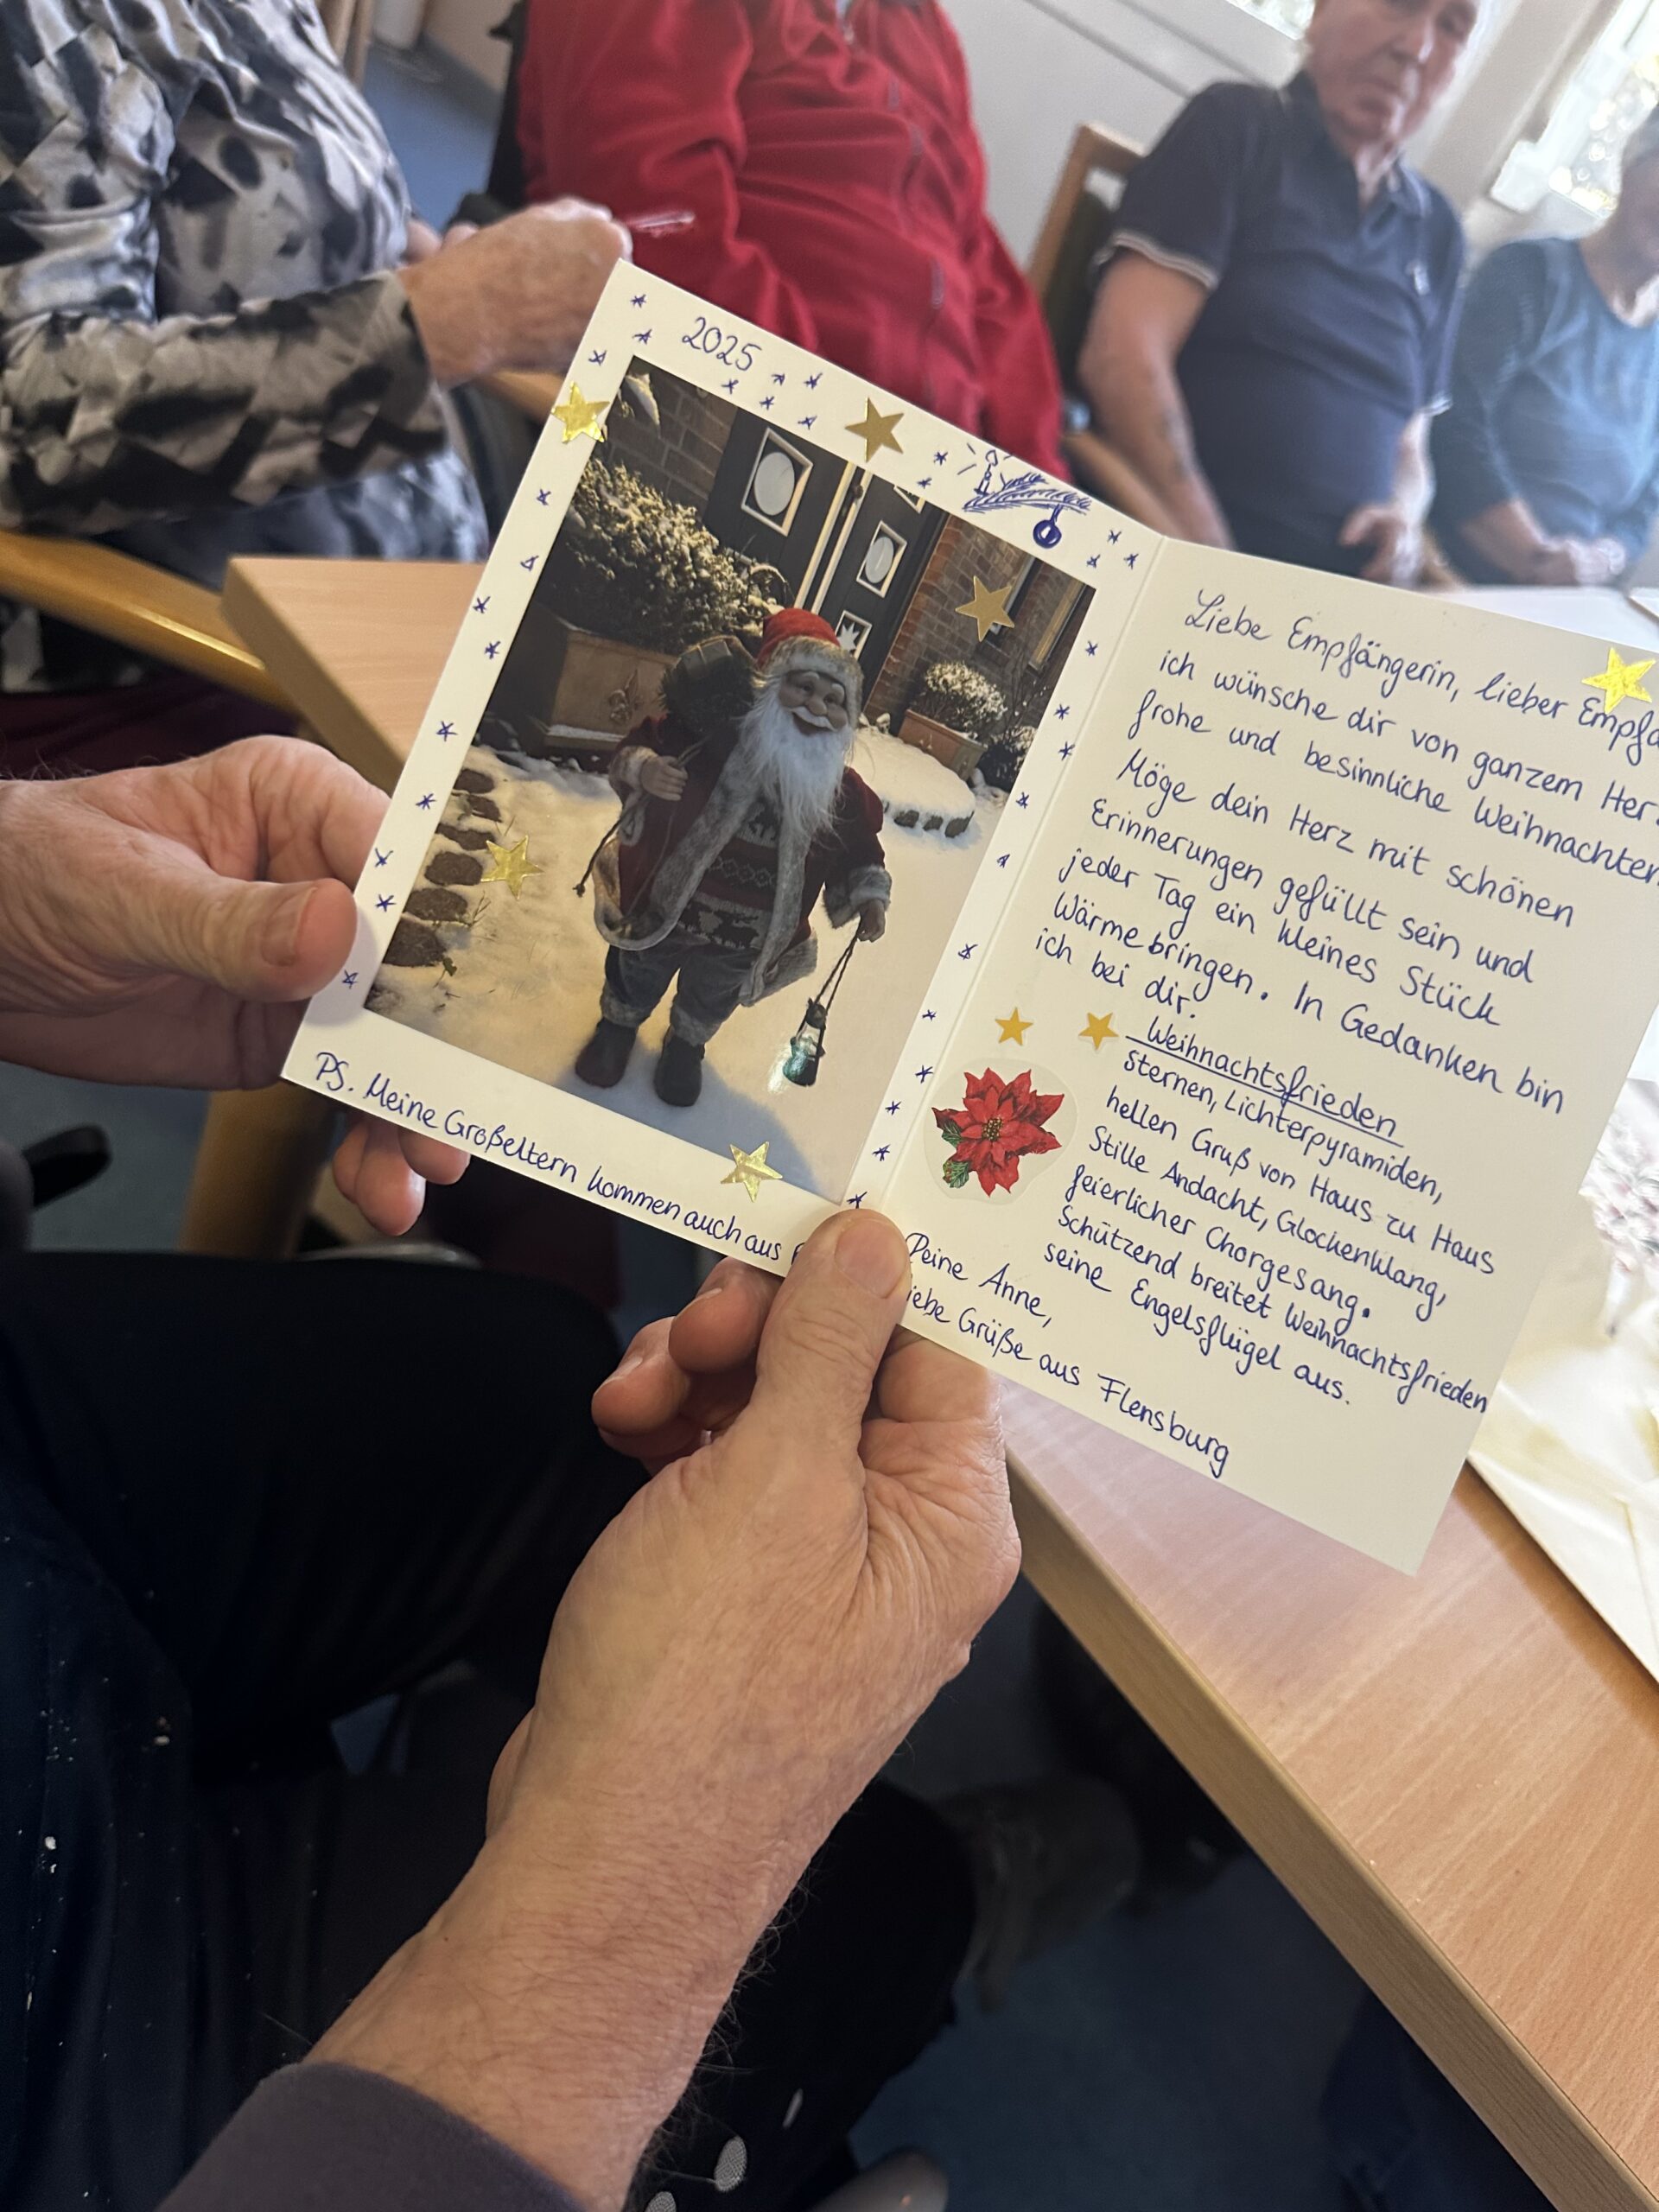 2025
PS. Meine Großeltern kommen auch aus
Liebe Empfängerin, lieber
ich wünsche dir von ganzem
frohe und besinnliche Weihnachten
Möge dein Herz mit schönen
Erinnerungen gefüllt sein und
jeder Tag ein kleines Stück
Wärme bringen. In Gedanken bin
ich bei dir.
Weihnachtsfrieden
Sternen, Lichterpyramiden,
hellen Gruß von Haus zu Haus
Stille Andacht, Glockenklang,
feierlicher Chorgesang.
Schützend breitet Weihnachtsfrieden
seine Engelsflügel aus.
Deine Anne,
Liebe Grüße aus Flensburg